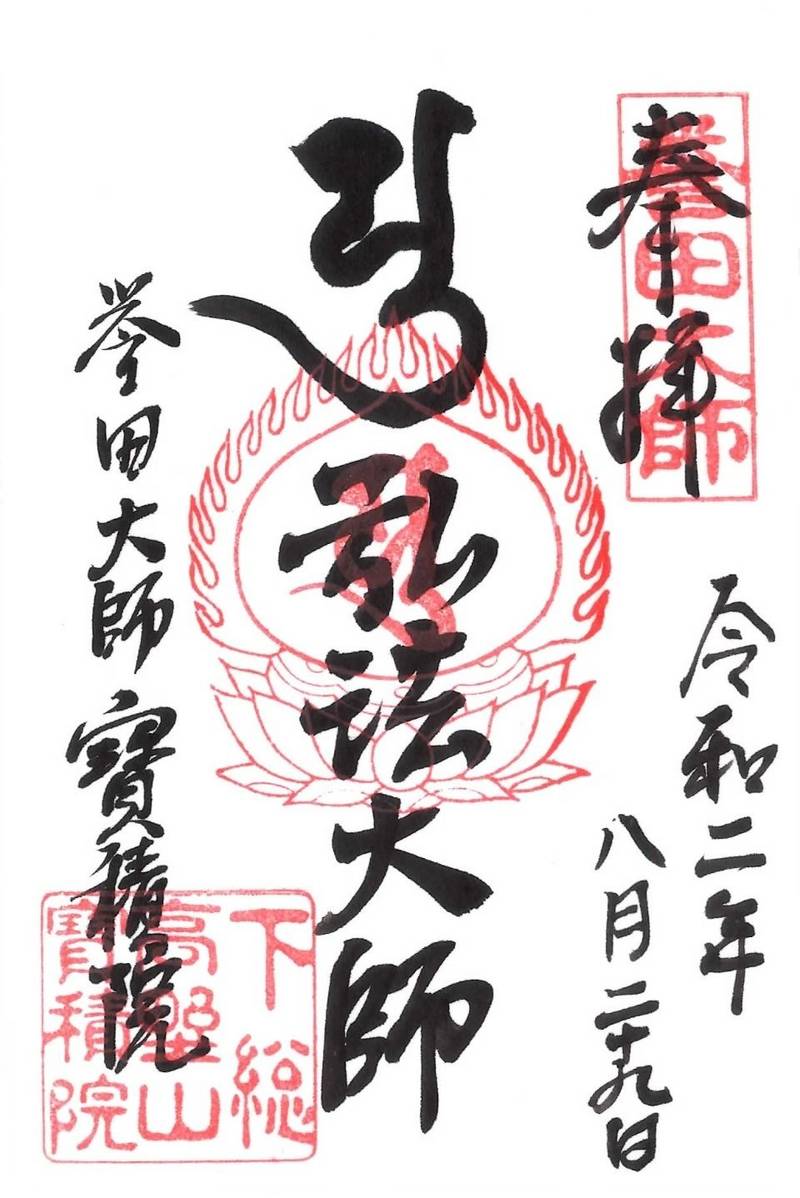 奉拝
誉田大師
令和二年
八月二十九日
弘法大師
誉田大師 寳積院
下総
高野山
寳積院